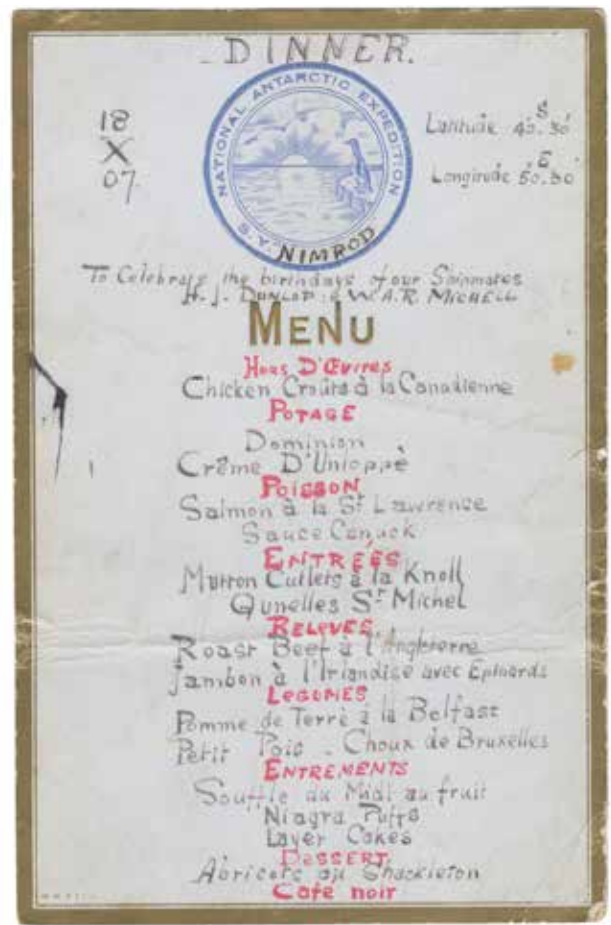 DINNER.
NATIONAL ANTARCTIC EXPEDITION
S.Y. NIMROD
18
X
07.
S
Latitude 40°.30'
E
Longitude 50°.30'
To Celebrate the birthdays of our Shipmates
H. J. DUNLOP & W.A.R. MICHELL
MENU
Hors D'Œuvres
Chicken Croûts à la Canadienne
POTAGE
Dominion
Crême D'
POISSON
Salmon à la St Lawrence
Sauce Canuck
ENTRÉES
Mutton Cutlets à la Knoll
Qunelles St Michel
RELEVES
Roast Beef à l'Angleterre
Jambon à l'Irlandise avec Epinards
LEGUMES
Pomme de Terrè à la Belfast
Petit Pois - Choux de Bruxelles
ENTREMENTS
Souffle du Midi au fruit
Niagra Puffs
Layer Cakes
DESSERT
Abricots au Shackleton
Café noir